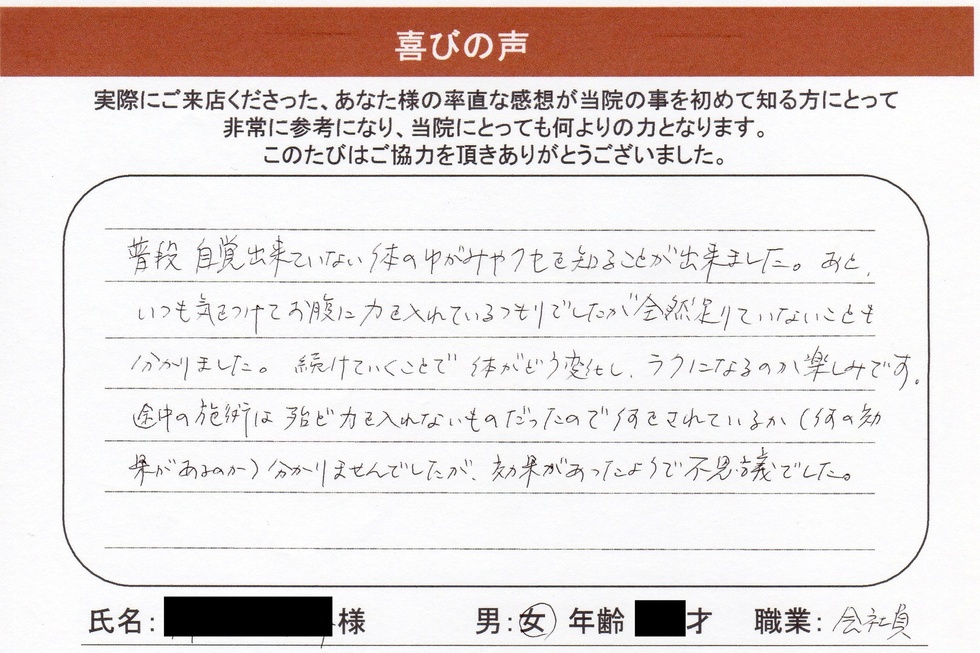 喜びの声
実際にご来店くださった、あなた様の率直な感想が当院の事を初めて知る方にとって
非常に参考になり、当院にとっても何よりの力となります。
このたびはご協力を頂きありがとうございました。
普段 自覚出来ていない体のゆがみやクセを知ることが出来ました。あと、
いつも気をつけてお腹に力を入れているつもりでしたが全然足りていないことも
分かりました。続けていくことで 体がどう変化し、ラクになるのか楽しみです。
途中の施術は 殆ど力を入れないものだったので何をされているか(何の効
果があるのか)分かりませんでしたが、効果があったようで不思議でした。
氏名: 様 男:女 年齢 才 職業: 会社員